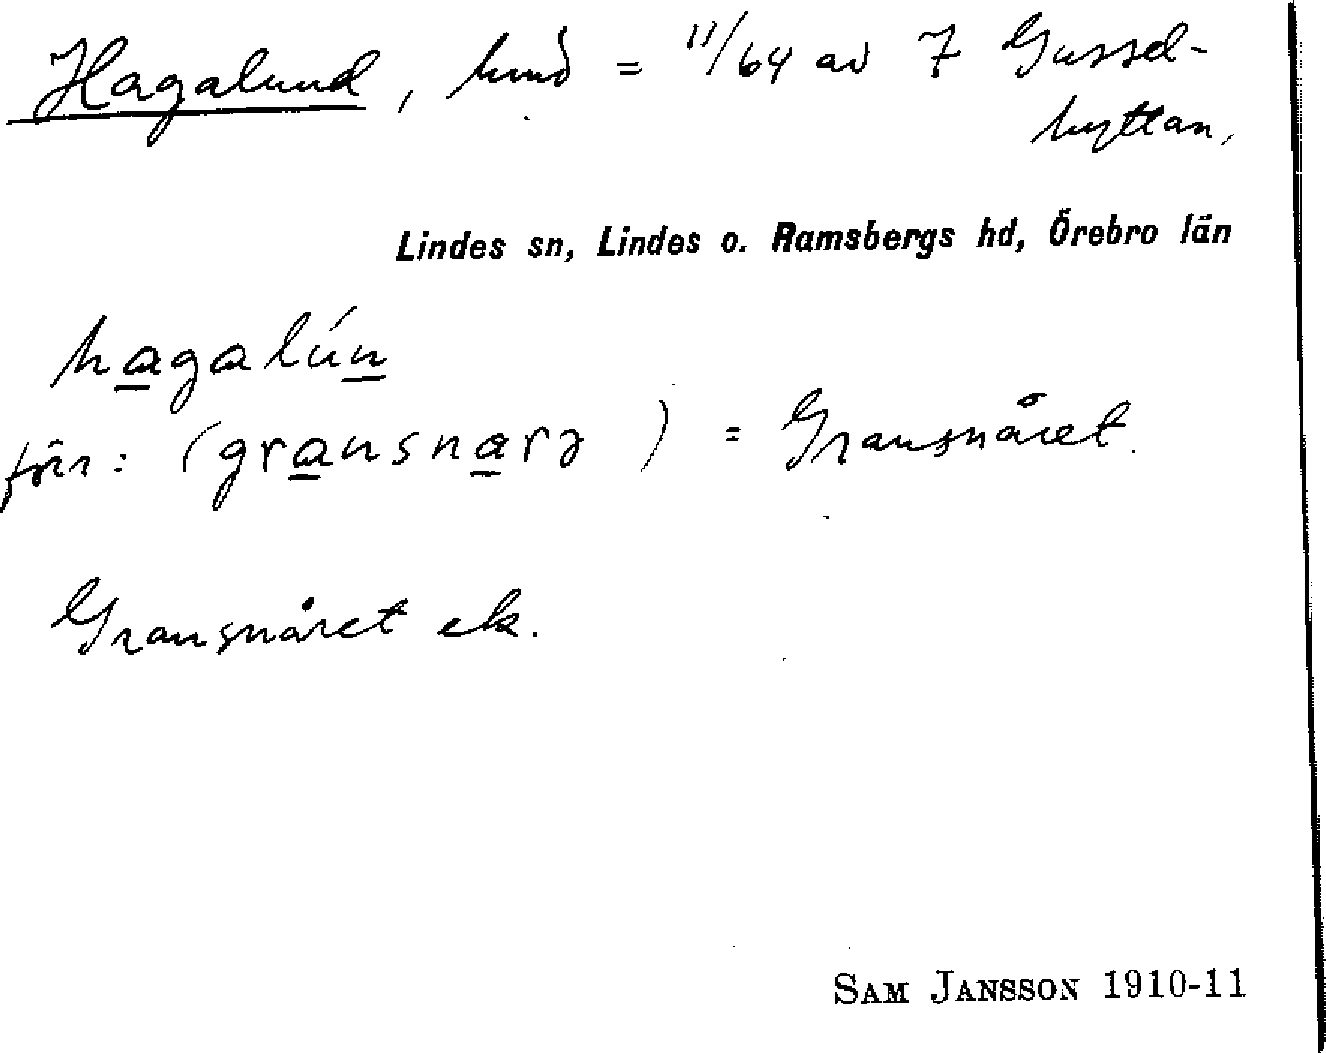 Hagalund, hmd = 11/64 av 7 Gussel-
hyttan,
Lindes sn, Lindes o. Ramsbergs hd, Örebro län
hagalún
förr: (gransnarə) = Gransnåret.
Gransnåret ek.
SAM JANSSON 1910-11